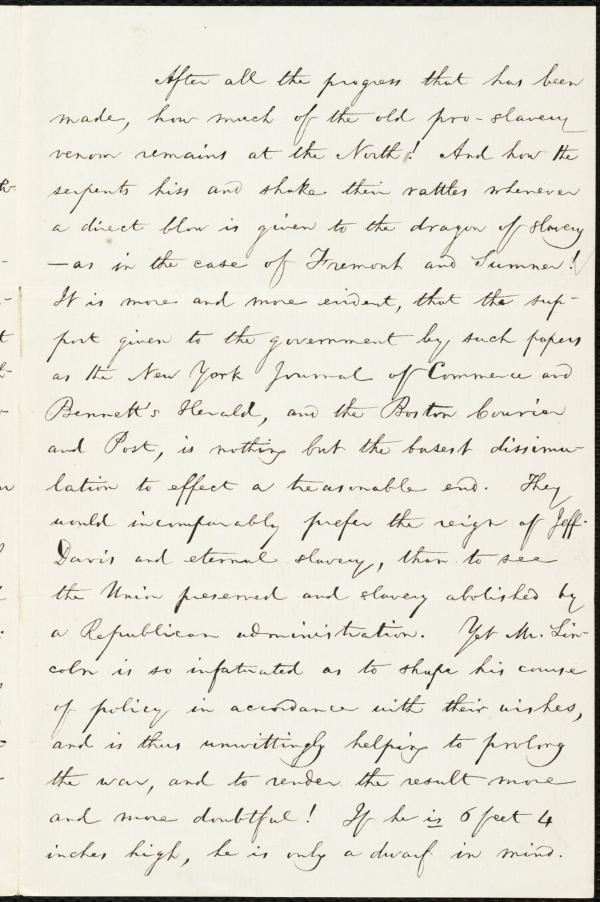 After all the progress that has been
made, how much of the old pro-slavery
venom remains at the North! And how the
serpents hiss and shake their rattles whenever
a direct blow is given to the dragon of slavery
—as in the case of Fremont and Sumner!
It is more and more evident, that the sup-
port given to the government by such papers
as the New York Journal of Commerce and
Bennett's Herald, and the Boston Courier
and Post, is nothing but the basest dissimu-
lation to effect a treasonable end. They
would incomparably prefer the reign of Jeff.
Davis and eternal slavery, than to see
the Union preserved and slavery abolished by
a Republican administration. Yet Mr. Lin-
coln is so infatuated as to shape his course
of policy in accordance with their wishes,
and is thus unwittingly helping to prolong
the war, and to render the result more
and more doubtful! If he is 6 feet 4
inches high, he is only a dwarf in mind.